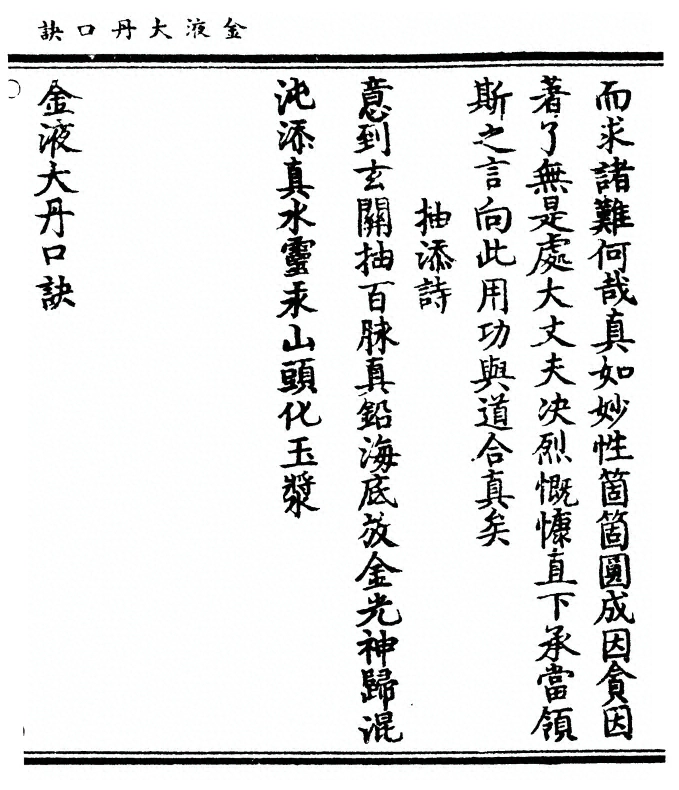 金液大丹口訣
而求諸難何哉真如妙性箇箇圓成因貪因
著了無是處大丈夫决烈慨慷直下承當領
斯之言向此用功與道合真矣
抽添詩
意到玄關抽百脉真鉛海底放金光神歸混
沌添真水靈汞山頭化玉漿
金液大丹口訣